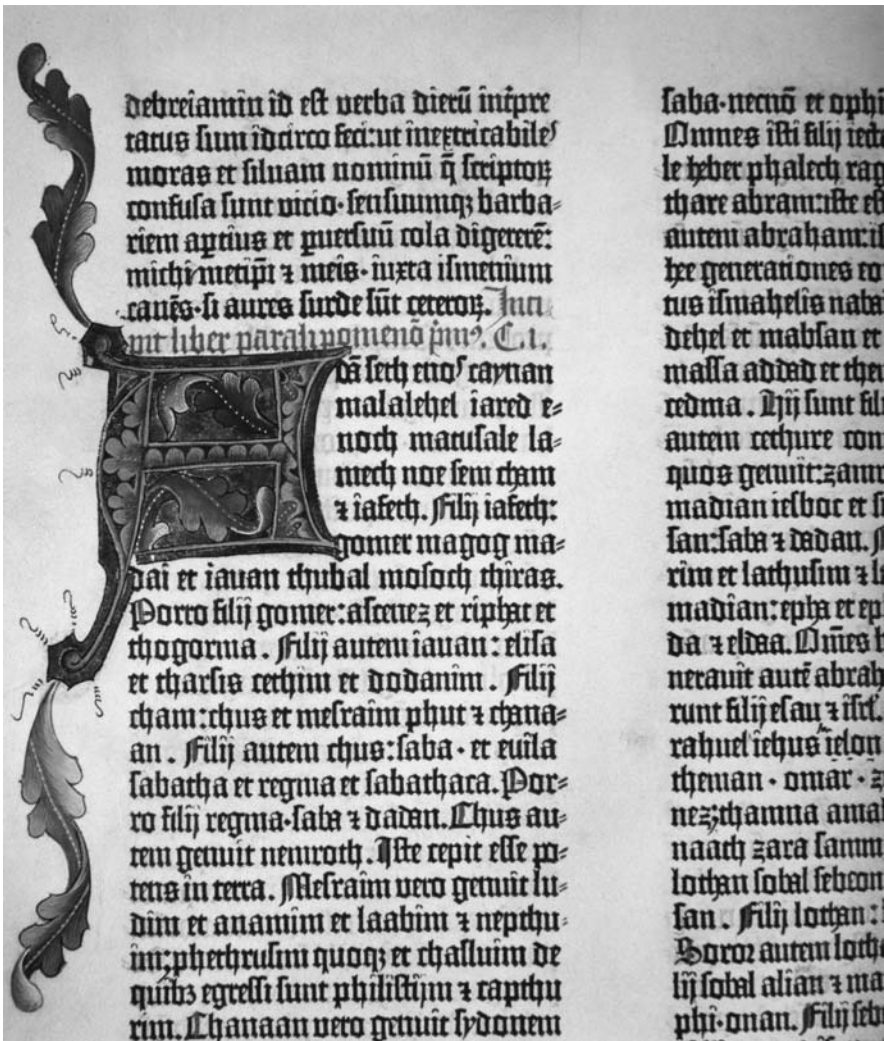 debreiamin id est verba dierū int̄pre
tatus sum idcirco feci:ut inextricabiles
moras et siluam nominū q̄ scriptoꝝ
confusa sunt vicio·sensuumqꝫ barba⸗
riem aptius et ꝑ versuū cola digererē:
michimetip̄i ⁊ meis·iuxta ismenium
canēs·si aures surde sūt ceteroꝝ. Inci
pit liber paralipomenō prim⁹. C.1.
dā seth enos caynan
malalehel iared e⸗
noch matusale la⸗
mech noe sem cham
⁊ iafeth. Filij iafeth:
gomer magog ma⸗
dai et iavan thubal mosoch thiras.
Porro filij gomer:ascenez et riphat et
thogorma. Filij autem iavan: elisa
et tharsis cethim et dodanim. Filij
cham:chus et mesraim phut ⁊ chana⸗
an. Filij autem chus:saba· et euila
sabatha et regma et sabathaca. Por⸗
ro filij regma·saba ⁊ dadan. Chus au⸗
tem genuit nemroth. Iste cepit esse po⸗
tens in terra. Mesraim vero genuit lu⸗
dim et anamim et laabim ⁊ nepthu⸗
im:phethrusim quoqꝫ et chasluim de
quibꝫ egressi sunt philistijm ⁊ capthu
rim. Chanaan vero genuit sydonem
saba·necnō et ophi
Omnes isti filij iecta
le heber phalech rag
thare abram:iste est
autem abraham:is
hee generationes eo
tus ismahelis nabai
dehel et mabsan et
massa addad et them
cedma. Hij sunt fili
autem cethure con
quos genuit:zamr
madian iesboc et s
san:saba ⁊ dadan.
rim et lathusim ⁊ l
madian:epha et ep
da ⁊ eldaa. Om̄es h
nerauit autē abrah
runt filij esau ⁊ isrl̄.
rahuel iehus ielon
theman· omar· z
nez;thamna amal
naath zara samm
lothan sobal sebeon
san. Filij lothan:
Soror autem loth
lij sobal alian ⁊ ma
phi·onan. Filij seb